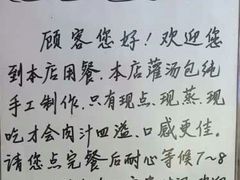 顾客您好！欢迎您
到本店用餐．本店灌汤包纯
手工制作．只有现点．现蒸．现
吃才会肉汁四溢．口感更佳．
请您点完餐后耐心等候7~8